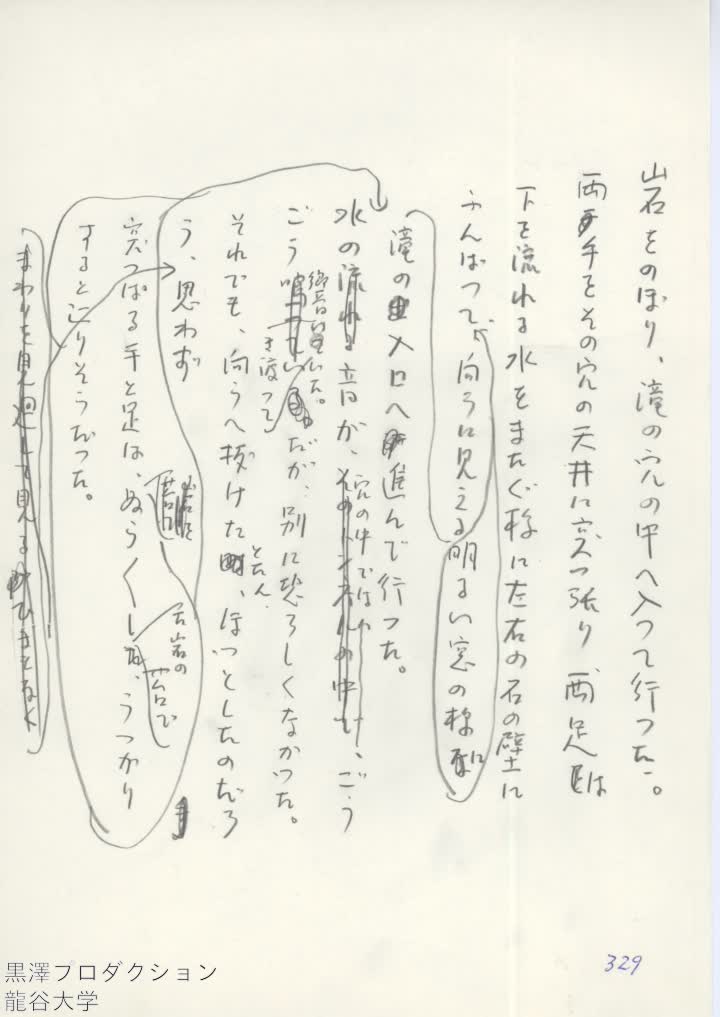 岩をのぼり、滝の穴の中へ入つて行つた。
両手をその穴の天井に突つ張り、両足は
下を流れる水をまたぐ様に左右の石の壁に
ふんばつて、向うに見える明るい窓の様な
滝の入口へ進んで行つた。
水の流れる音が、そのトンネルの中で、ごう
穴の中では
ごう
響いた。
き渡つて
だが、別に恐ろしくなかつた。
それでも、向うへ抜けた時、ほつとしたのだろ
とたん、
う、思わず
突つぱる手と足は、ぬらくし、うつかり
岩苔
石岩の
苔で
すると辷りそうだつた。
まわりを見廻して見る
329
黒澤プロダクション
龍谷大学